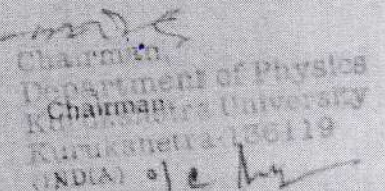 Chairman,
Department of Physics
Chairman
Kurukshetra University
Kurukshetra-136119
(INDIA)